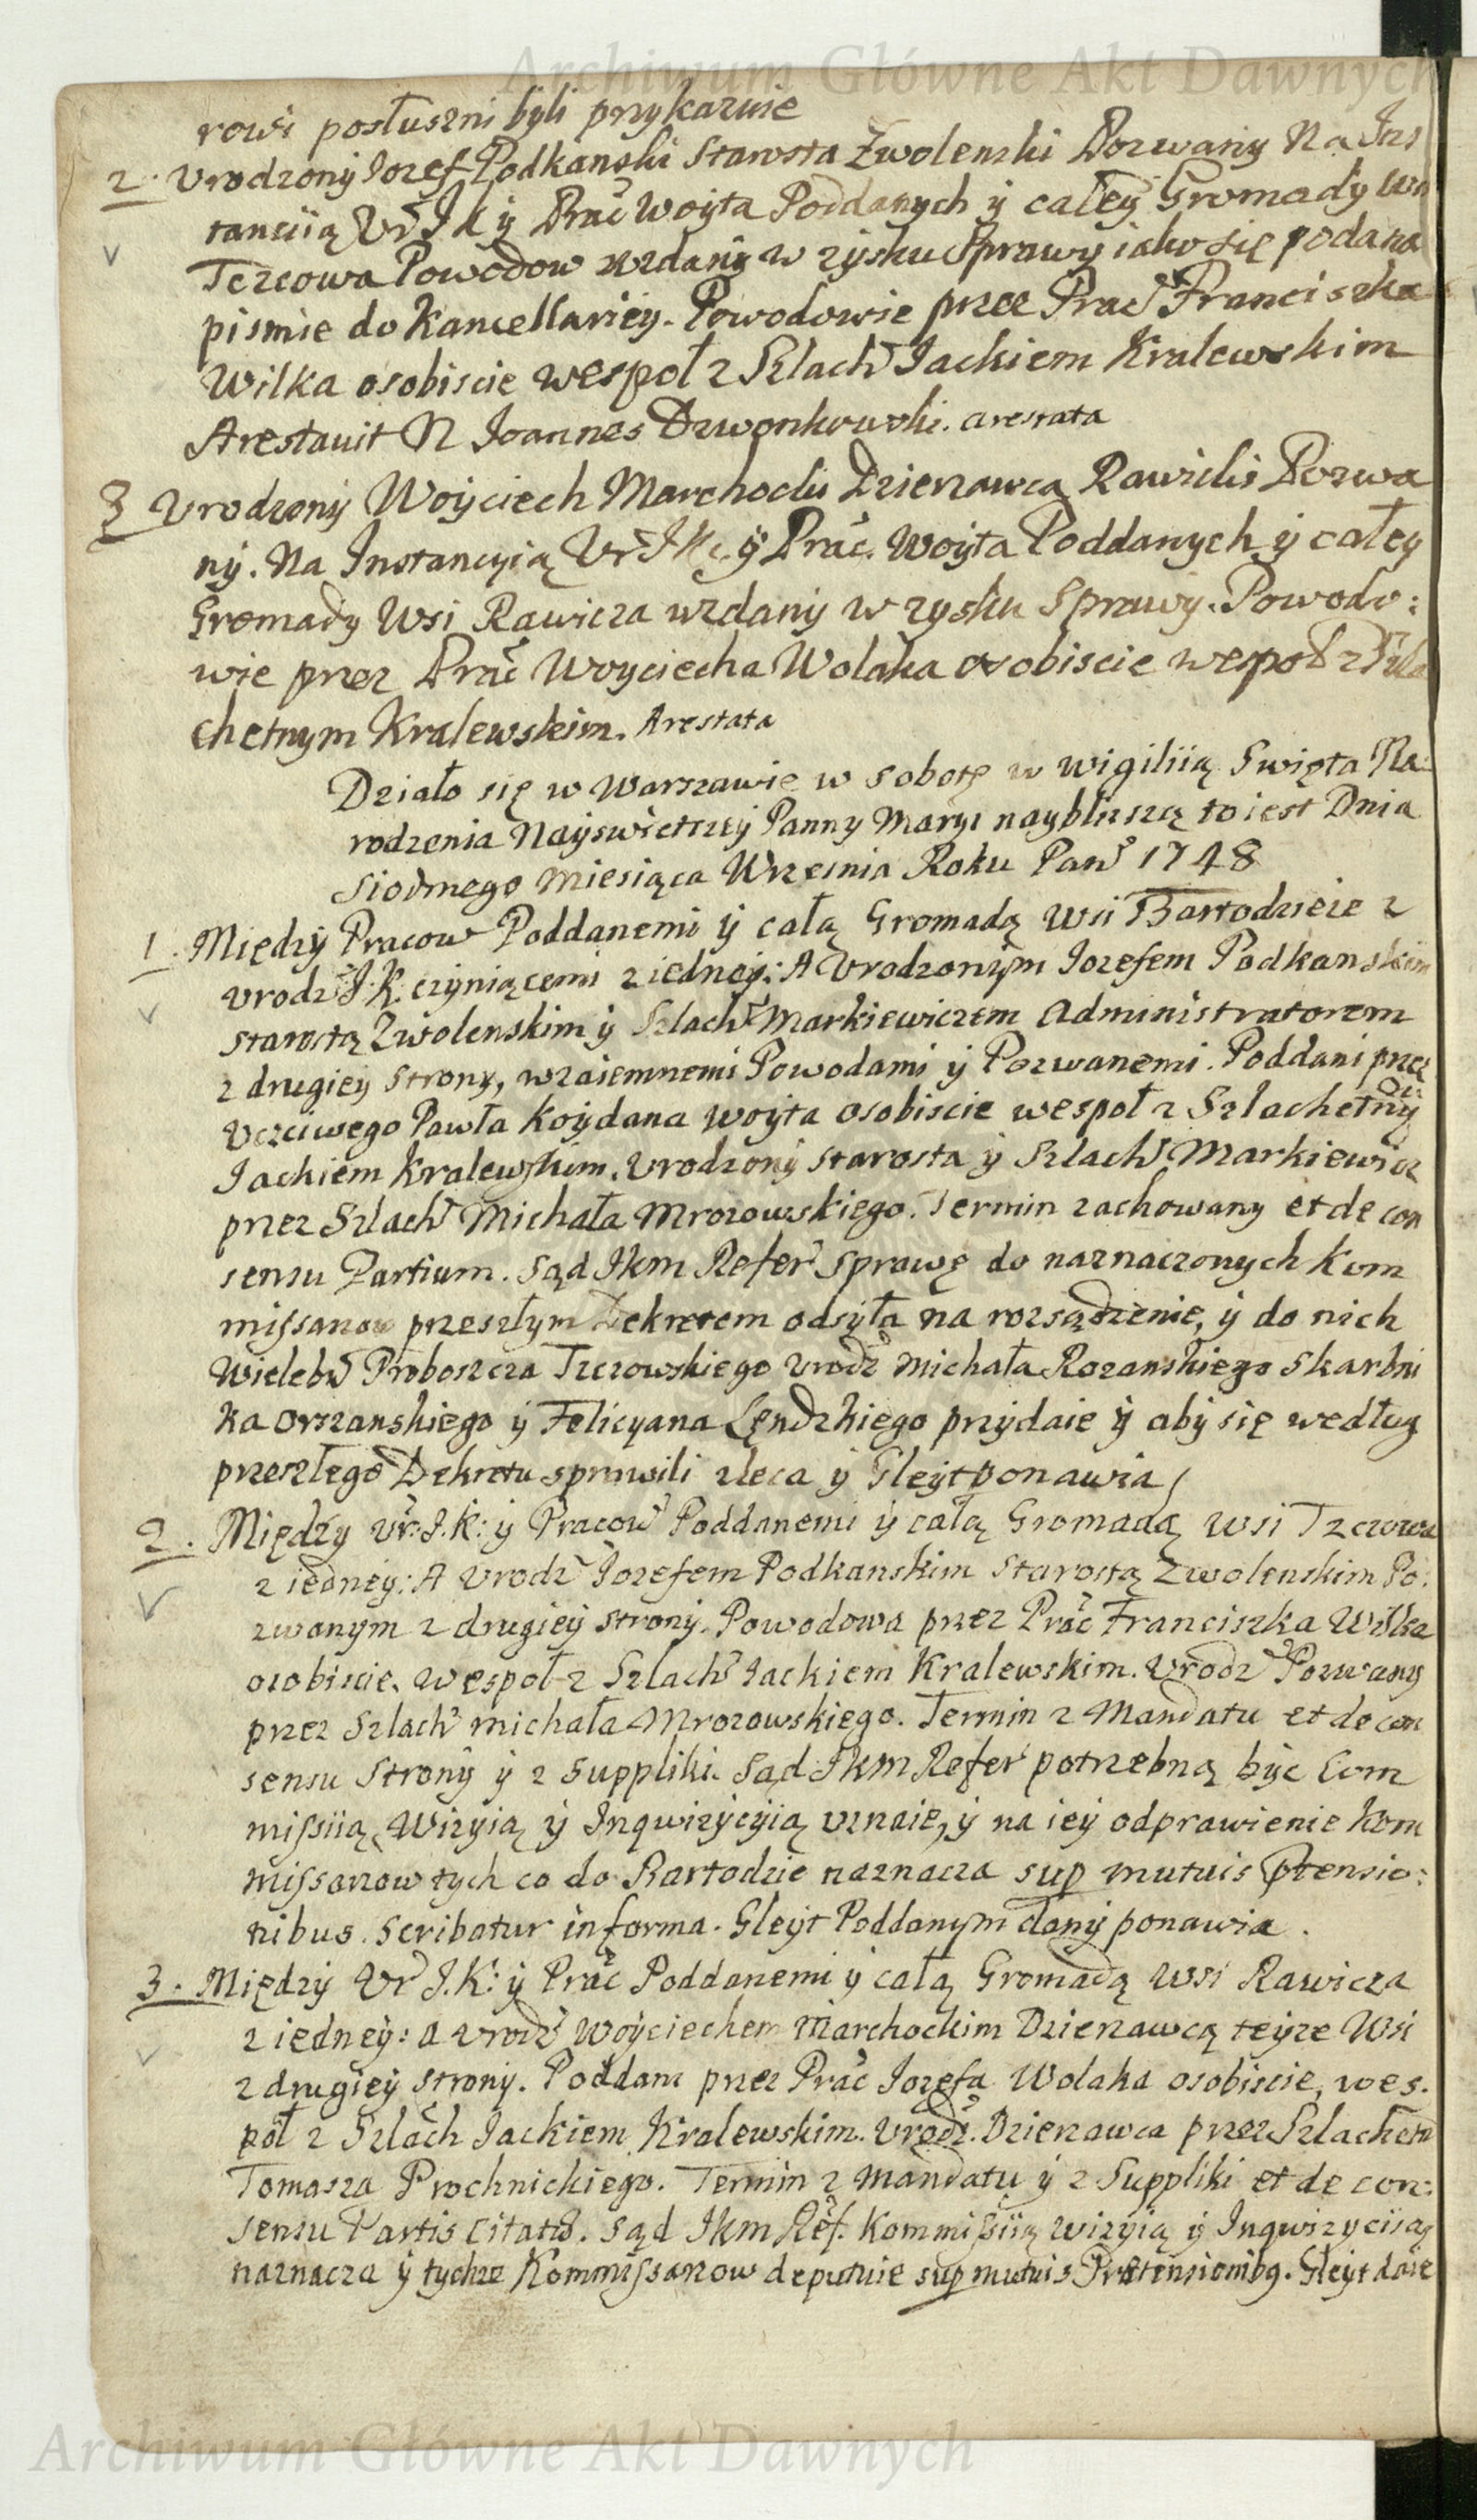 Archiwum Główne Akt Dawnych
rowi posłuszni byli przykazuie
2. Urodzony Iozef Podkanski Starosta Zwolenski Pozwany Na Ins
tanciią Ur J K y Prac Woyta Poddanych y całey Gromady wsi
Tczcowa Powodow wzdany w zysku Sprawy iako się podana
pismie do Kancellariey. Powodowie przez Prac Franciszka
Wilka osobiscie wespoł z Szlach Iackiem Kralewskim
Arestavit N Joannes Dzwonkowski. arestata
3 Urodzony Woyciech Marchocki Dzierzawca Rawicki Pozwa
ny. Na Instancyią Ur J K. y Prac. Woyta Poddanych y całey
Gromady Wsi Rawicza wzdany w zysku Sprawy. Powodo:
wie przez Prac Woyciecha Wolaka osobiscie wespoł z Szla
chetnym Kralewskim. Arestata
Działo się w Warszawie w sobotę w wigiliią Swięta Na:
rodzenia Nayswietszey Panny Maryi naybliszą to iest Dnia
siodmego Miesiąca Wrzesnia Roku Pań 1748
1. Między Pracow Poddanemi y całą Gromadą Wsi Bartodzieie z
urodz J.K. czyniącemi z iedney: A Urodzonym Iozefem Podkanskim
starostą Zwolenskim y Szlach Markiewiczem Administratorem
z drugiey strony, wzaiemnemi Powodami y Pozwanemi. Poddani przez
Uczciwego Pawła Koydana woyta osobiscie wespoł z Szlachetny
Iackiem Kralewskim. Urodzony starosta y Szlach Markiewicz
przez Szlach Michała Mrozowskiego. Termin zachowany et de con
sensu Partium. Sąd Jkm Refer sprawę do naznaczonych Kom
missarzow przeszłym Dekretem odsyła na rozsądzenie, y do nich
Wieleb Proboszcza Tczcowskiego Urodz Michała Rozanskiego Skarbni
ka Orszanskiego y Felicyana Lędzkiego przydaie y aby się według
przeszłego Dekretu sprawili zleca y Gleyt ponawia
2. Między Ur: J.K: y Pracow Poddanemi y całą Gromadą Wsi Tzczowa
z iedney: A Urodz Iozefem Podkanskim Starostą Zwolenskim Po:
zwanym z drugiey strony. Powodowa przez Prac Franciszka Wilka
osobiscie. wespoł z Szlach Iackiem Kralewskim. Urodz Pozwany
przez Szlach Michała Mrozowskiego. Termin z Mandatu et de con
sensu Strony y z Suppliki. Sąd Jkm Refer potrzebną być Com
missiią Wizyią y Inqwizycyią uznaie, y na iey odprawienie Kom
missarzow tych co do Bartodzie naznacza sup mutuis ptensio:
nibus. Scribatur in forma. Gleyt Poddanym dany ponawia.
3. Między Ur J.K: y Prac Poddanemi y całą Gromadą Wsi Rawicza
z iedney: a Urodz Woyciechem Marchockim Dzierzawcą teyze Wsi
z drugiey strony. Poddani przez Prac Iozefa Wolaka osobiscie, wes.
poł z Szlach Iackiem Kralewskim. Urodz. Dzierzawca przez Szlachetn
Tomasza Prochnickiego. Termin z Mandatu y z Suppliki et de con:
sensu Partis Citatae. Sąd Jkm Ref. Kommissiią wizyią y Inqwizyciią
naznacza y tychze Kommissarzow deputuie sup mutuis Praetensionibq. Gleyt daie
Archiwum Główne Akt Dawnych